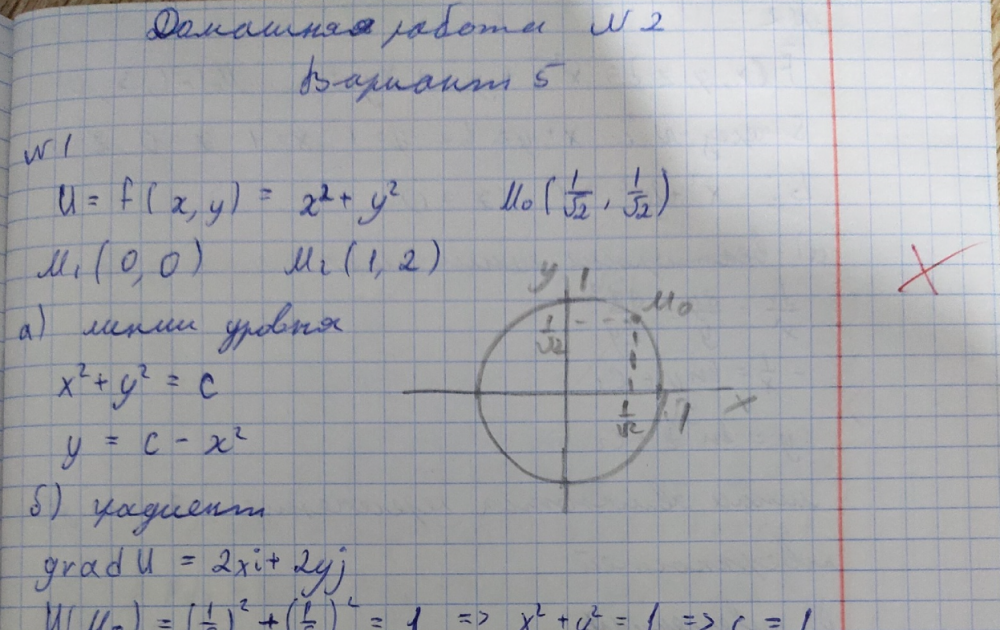 Домашняя работа N2
Вариант 5
N1
U = f(x,y) = x² + y² M₀(1/√2, 1/√2)
M₁(0,0) M₂(1,2)
а) линии уровня
x² + y² = c
y = c - x²
y 1 M₀
1/√2
1/√2 1 x
б) градиент
grad U = 2xi + 2yj
U(M₀) = (1/√2)² + (1/√2)² = 1 => x² + y² = 1 => c = 1